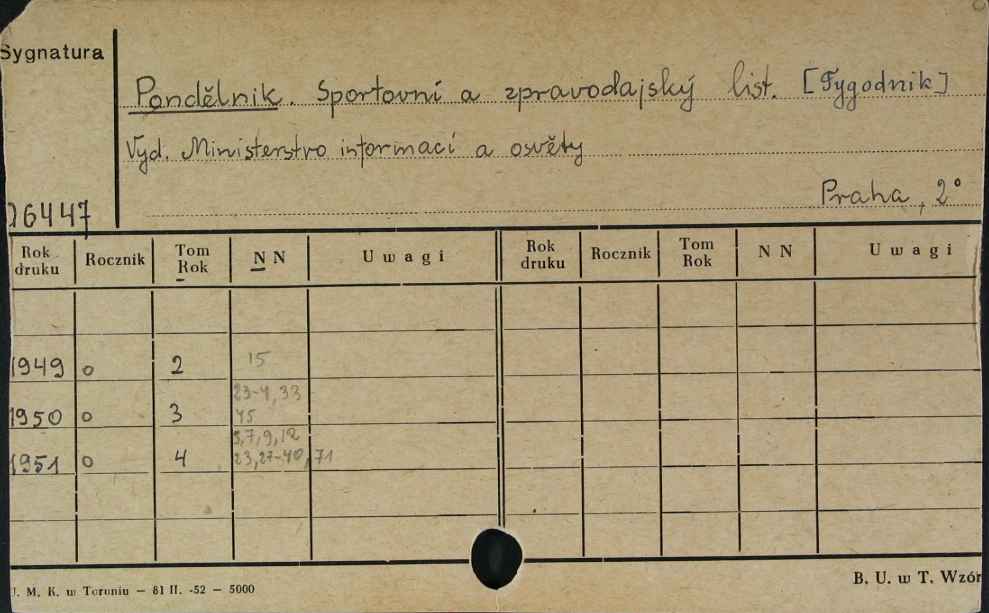 Sygnatura
Pondělnik. Sportovní a zpravodajský list. [Tygodnik]
Vyd. Ministerstvo informací a osvěty
Praha, 2°
26447
Rok druku Rocznik Tom Rok N N Uwagi Rok druku Rocznik Tom Rok N N Uwagi
1949 o 2 15
23-4, 33
1950 o 3 45
5,7,9,12
1951 o 4 23,27-40,71
U. M. K. w Toruniu — 81 II. -52 — 5000
B. U. w T. Wzór